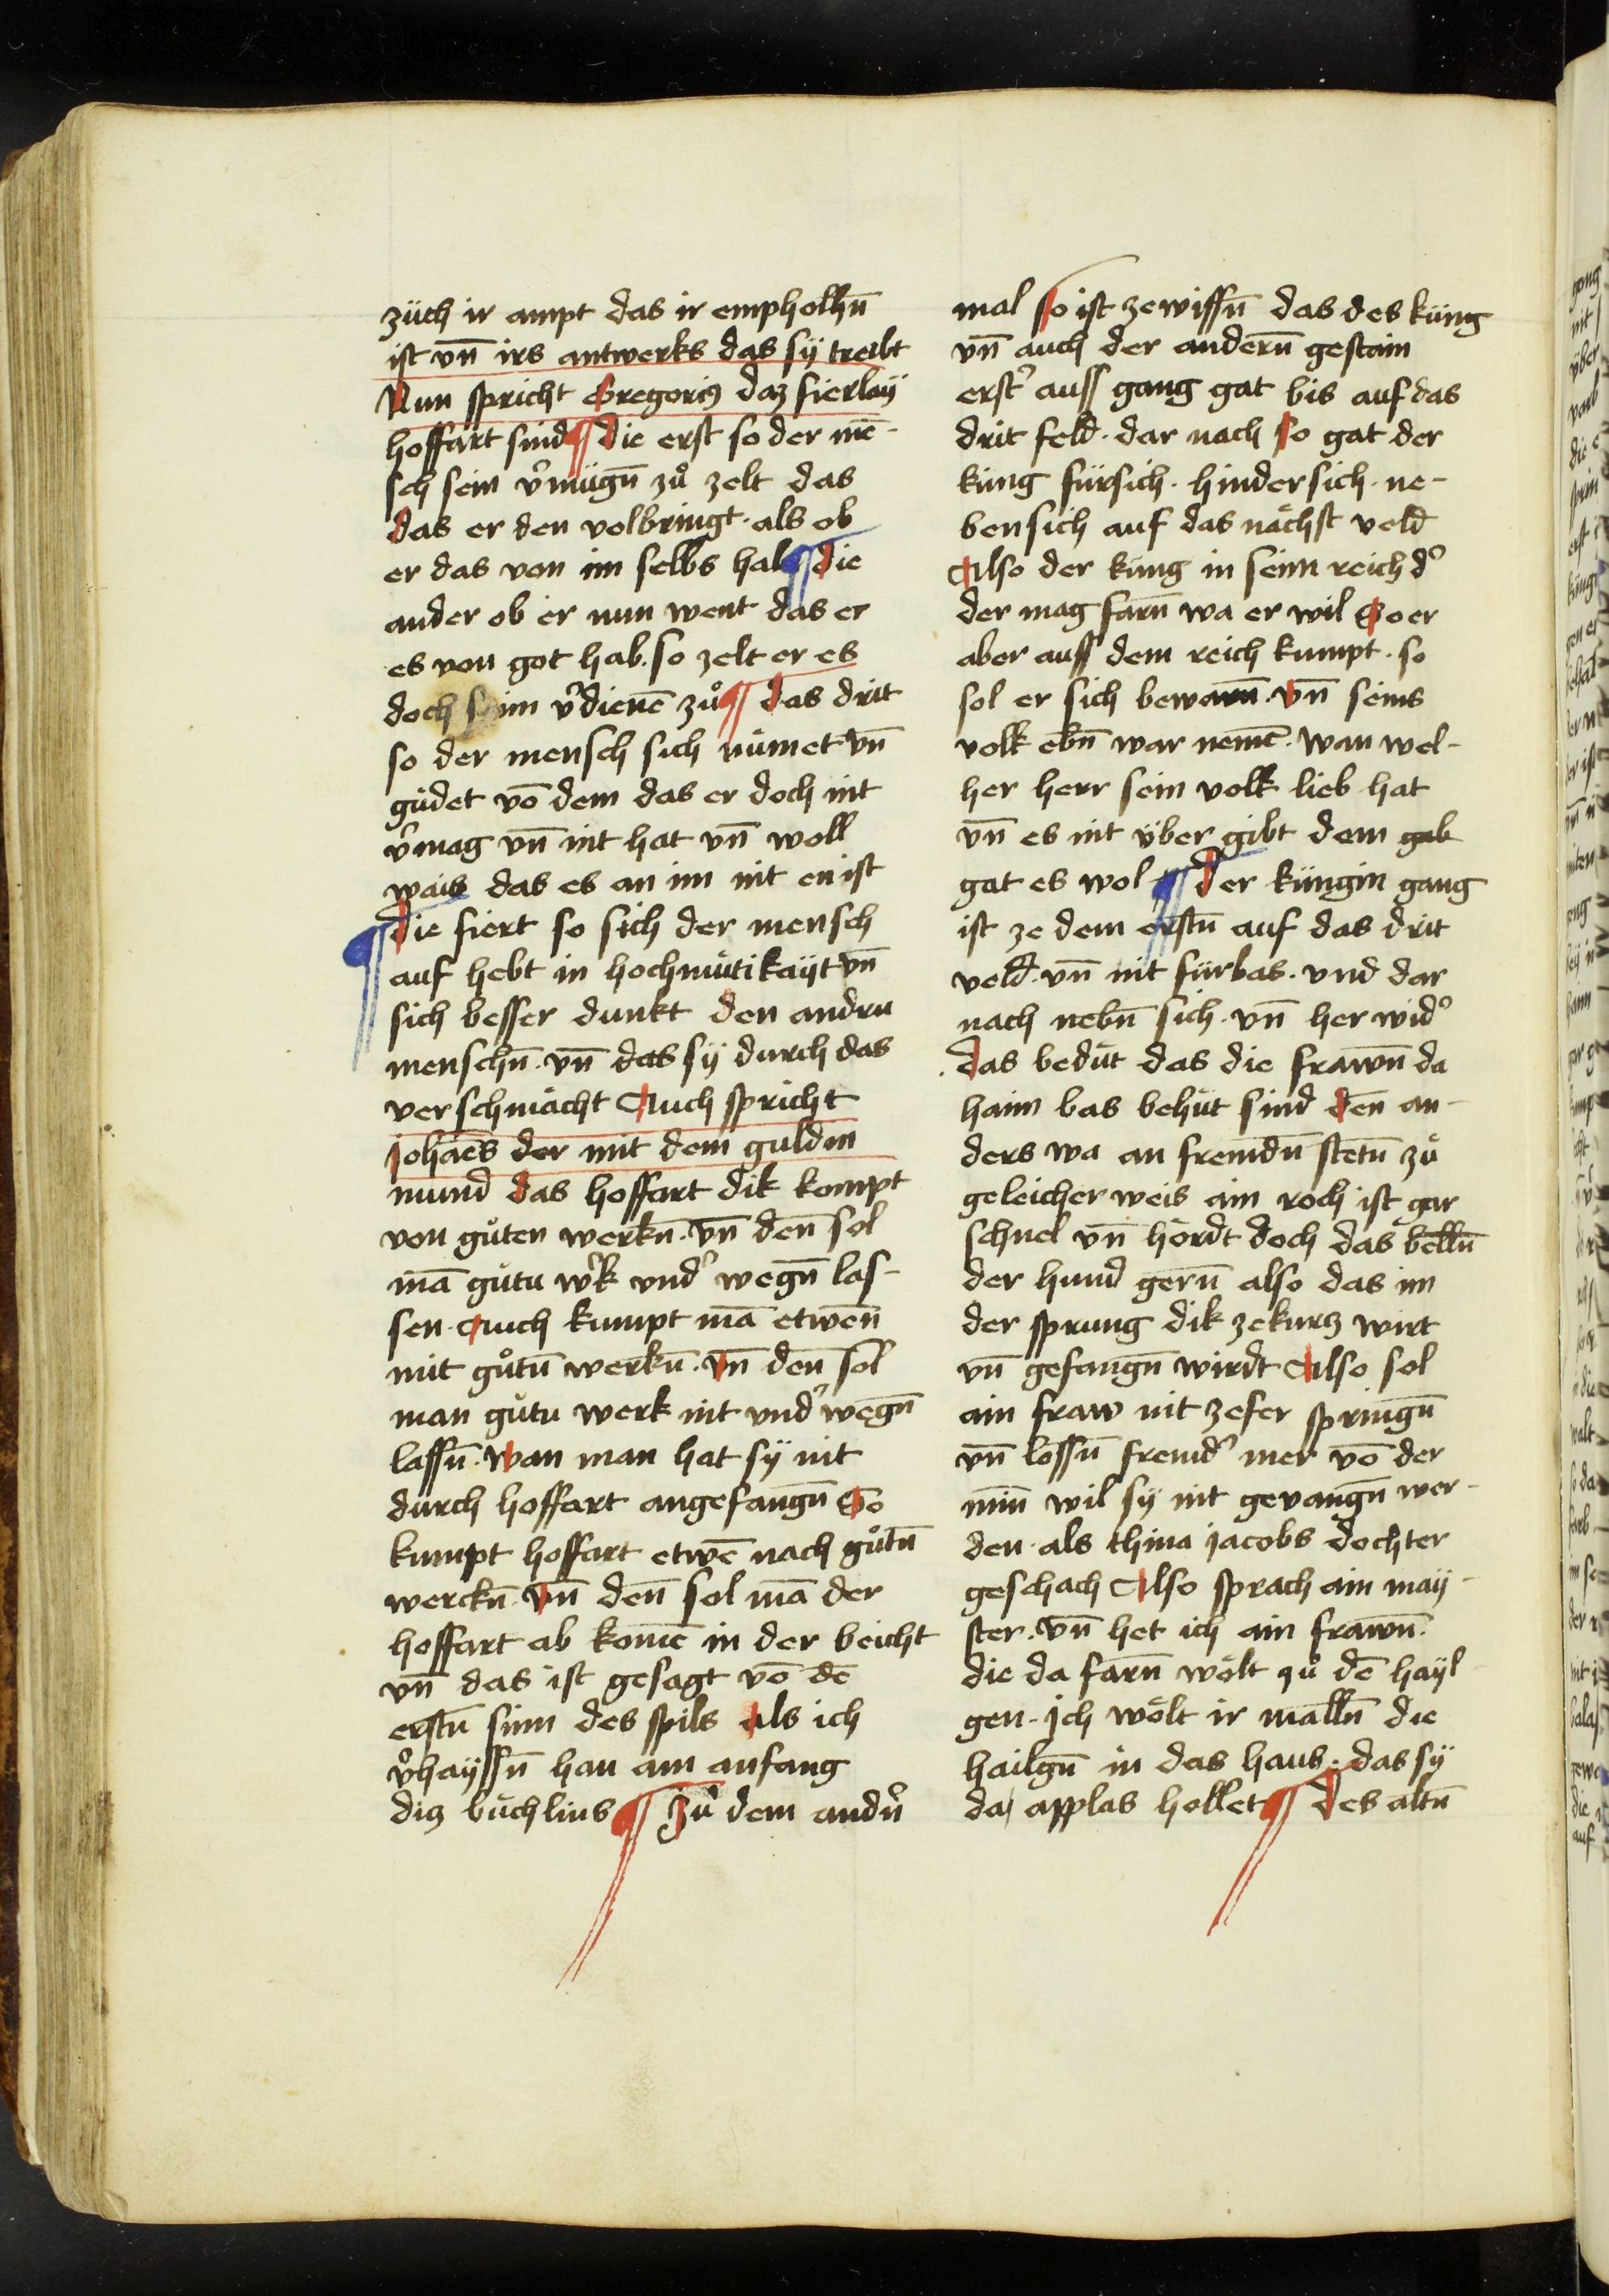 züch ir ampt das ir empholhn̄
ist vn̄ irs antwerks das sÿ treibt
Nun spricht Gregoriꝰ daz fierlaÿ
hoffart sind ¶ die erst so der mē-
sch sein v͛mügn̄ zů zelt das
das er den volbringt · als ob
er das von im selbs hab ¶ die
ander ob er nun went das er
es von got hab · so zelt er es
doch seim v͛dienē zů ¶ das drit
so der mensch sich rümet vn̄
güdet vō dem das er doch nit
v͛mag vn̄ nit hat vn̄ woll
wais das es an im nit en ist
¶ die fiert so sich der mensch
auf hebt in hochmütikaÿt vn̄
sich besser dunkt den andrn
menschn̄ · vn̄ das sÿ durch das
verschmächt Auch spricht
johāēs der mit dem guldin
mund das hoffart dik kompt
von gůten werkn̄ · vn̄ den̄ sol
mā gůtu w͛k vnd͛ wegn̄ las-
sen · Auch kumpt mā etwen̄
mit gůtn̄ werkn̄ · vn̄ den̄ sol
man gůtu werk nit vnd͛ wegn̄
lassn̄ · wan man hat sÿ nit
durch hoffart angefangn̄ So
kumpt hoffart etwē nach gůtn̄
werckn̄ · vn̄ den̄ sol mā der
hoffart ab komē in der beicht
vn̄ das ist gesagt vō dē
erstn̄ sinn des spils als ich
v͛hayssn̄ han am anfang
diz büchlins ¶ Zů dem andn͛
mal so ist zewissn̄ das des küng
vn̄ auch der andern̄ gestain
erst͛ auss gang gat bis auf das
drit feld · dar nach so gat der
küng fürsich · hindersich · ne-
bensich auf das nächst veld
Also der küng in seim reich d͛
der mag farn̄ wa er wil So er
aber auss dem reich kumpt · so
sol er sich bewarn̄ · vn̄ seins
volk ebn̄ war nemē · wan wel-
her herr sein volk lieb hat
vn̄ es nit über gibt dem gab
gat es wol ¶ der küngin gang
ist ze dem erstn̄ auf das drit
veld · vn̄ nit fürbas · vnd dar
nach nebn̄ sich · vn̄ her wid͛
das bedüt das die frawn̄ da
haim bas behüt sind den̄ an-
ders wa an fremdn̄ stetn̄ zů
geleicher weis ain roch ist gar
schnel vn̄ hördt doch das belln̄
der hund gern̄ also das im
der sprung dik zekurz wirt
vn̄ gefangn̄ wirdt Also sol
ain fraw nit zefer springn̄
vn̄ lossn̄ fremd͛ mer vō der
min̄ wil sÿ nit gevangn̄ wer-
den · als thina jacobs dochter
geschach Also sprach ain maÿ-
ster · vn̄ het ich ain frawn̄ ·
die da farn̄ wölt zů dē haÿl-
gen · jch wölt ir malln̄ die
hailgn̄ in das haus · das sÿ
da applas hollet ¶ des altn̄